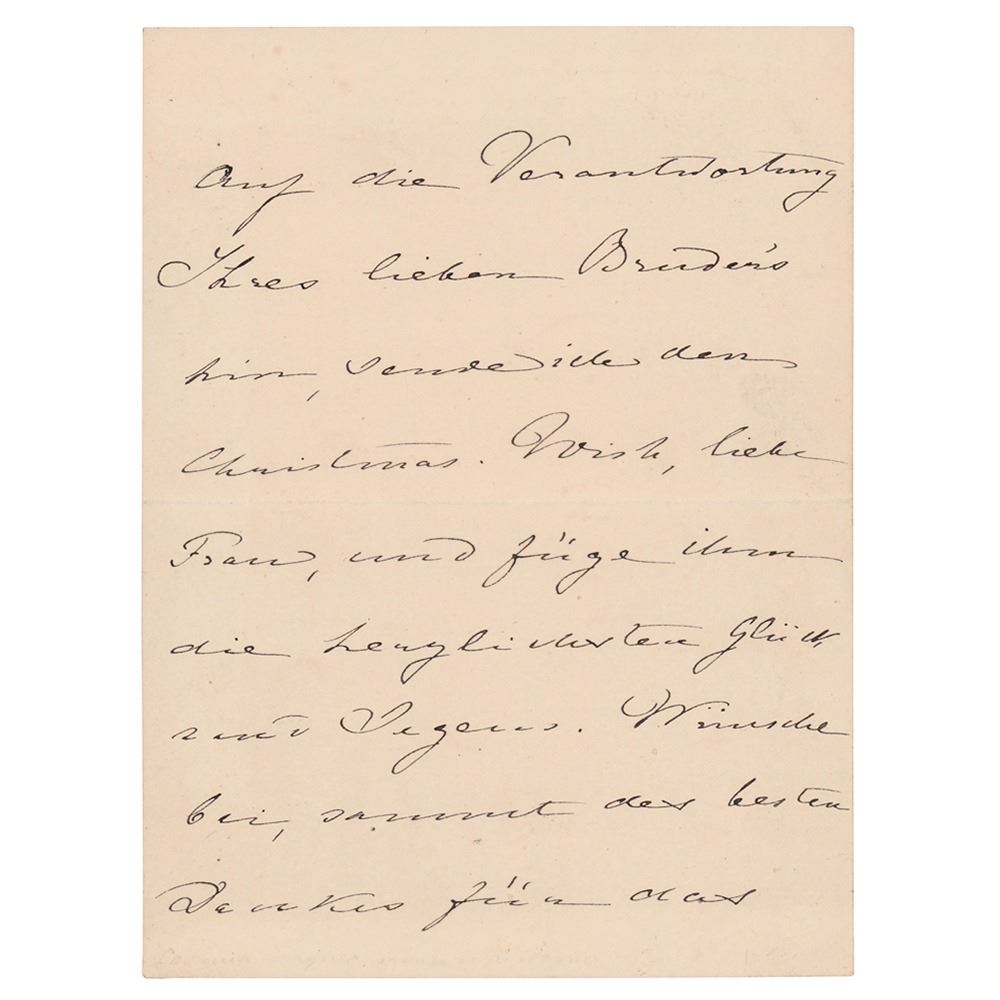 Auf die Verantwortung
Ihres lieben Bruder's
hin, sende ich den
Christmas. Wish, liebe
Frau, und füge ihm
die herzlichsten Glück
und Segens. Wünsche
bei, sammt des besten
Dankes für das